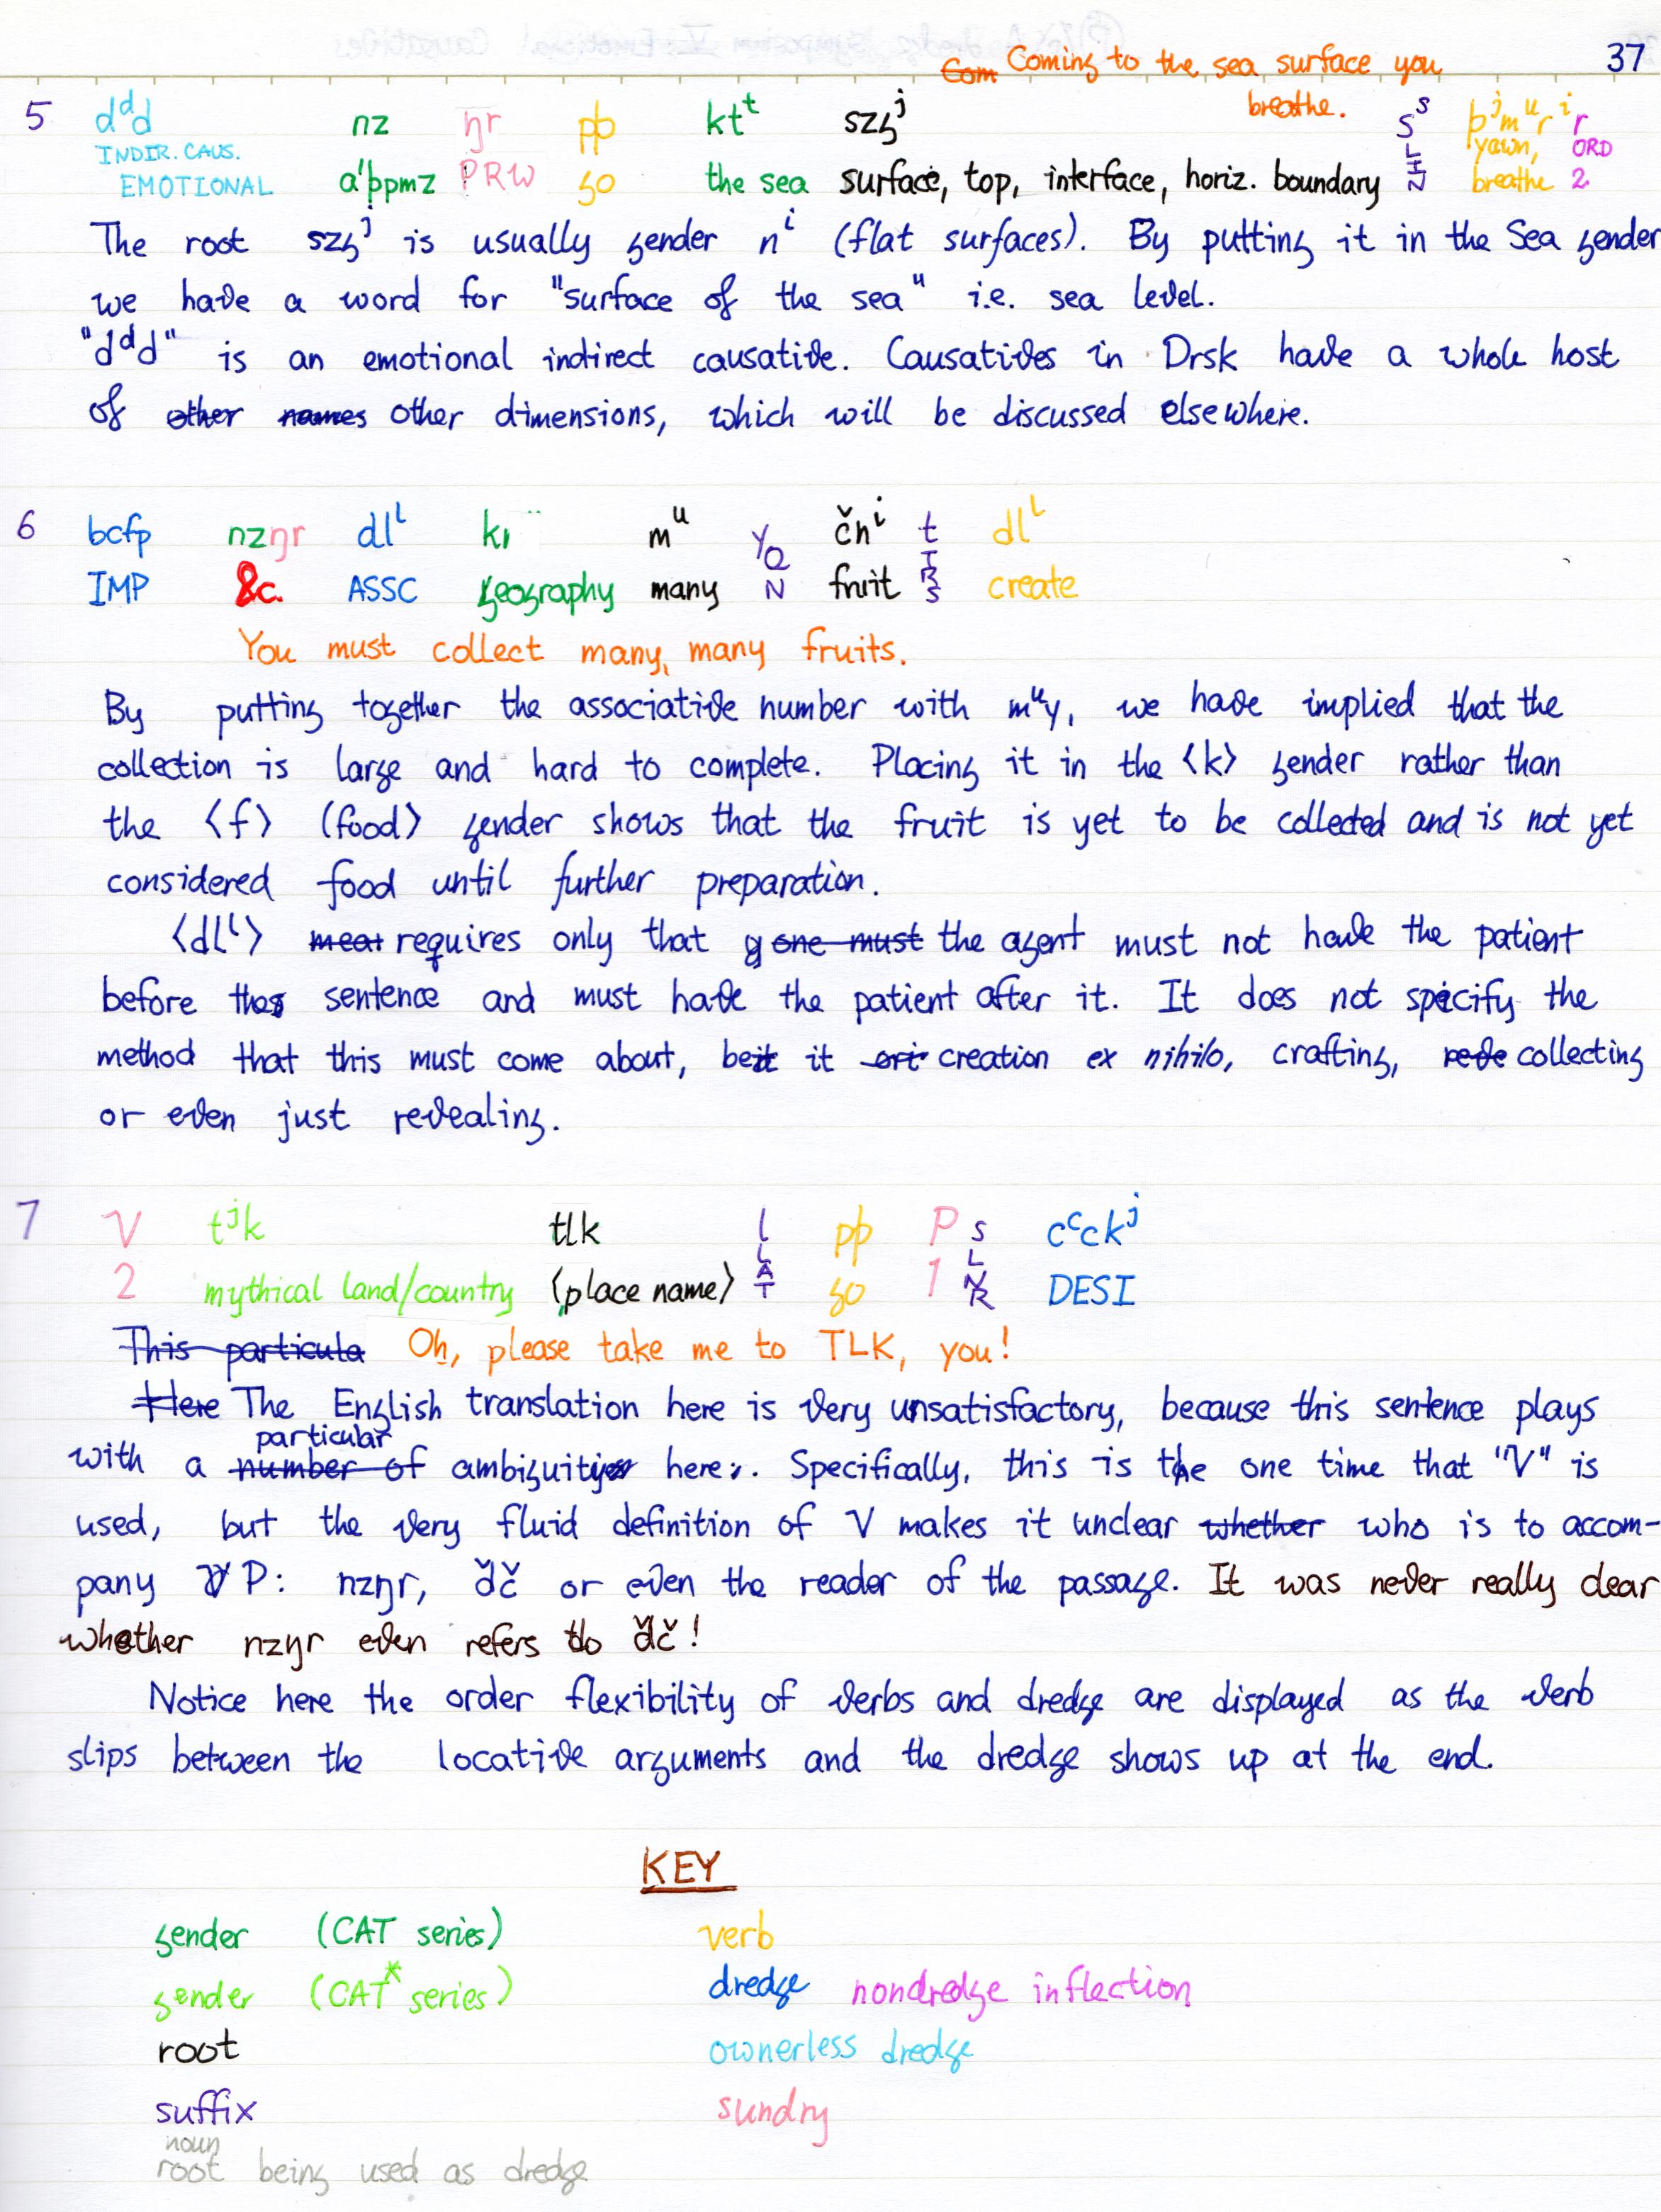 Com Coming to the sea surface you 37
breathe.
5 dᵈd nz ŋr pþ ktᵗ szȝʲ sˢ þʲmᵘrⁱr
INDIR. CAUS. yawn, ORD
EMOTIONAL a'þppmz PRW go the sea surface, top, interface, horiz. boundary breathe 2
The root szȝʲ is usually gender nⁱ (flat surfaces). By putting it in the Sea gender
we have a word for "surface of the sea" i.e. sea level.
"dᵈd" is an emotional indirect causative. Causatives in Drsk have a whole host
of other names other dimensions, which will be discussed elsewhere.
6 bcfp nzŋr dlˡ mᵘ YQ čnⁱ t dlˡ
IMP &c. ASSC geography many N fruit create
You must collect many, many fruits.
By putting together the associative number with mᵘy, we have implied that the
collection is large and hard to complete. Placing it in the ⟨k⟩ gender rather than
the ⟨f⟩ (food) gender shows that the fruit is yet to be collected and is not yet
considered food until further preparation.
⟨dlˡ⟩ meat requires only that y one must the agent must not have the patient
before the sentence and must have the patient after it. It does not specify the
method that this must come about, be it creation ex nihilo, crafting, reve collecting
or even just revealing.
7 V tʲk tlk l pþ P s cᶜckʲ
2 mythical land/country ⟨place name⟩ LAT go 1 DESI
This particula Oh, please take me to TLK, you!
Here The English translation here is very unsatisfactory, because this sentence plays
particular
with a number of ambiguity here. Specifically, this is the one time that "V" is
used, but the very fluid definition of V makes it unclear whether who is to accom-
pany P: nzŋr, ďč or even the reader of the passage. It was never really clear
whether nzŋr even refers to ďč!
Notice here the order flexibility of verbs and dredge are displayed as the verb
slips between the locative arguments and the dredge shows up at the end.
KEY
gender (CAT series) verb
gender (CAT* series) dredge nondredge inflection
root ownerless dredge
suffix sundry
noun
root being used as dredge